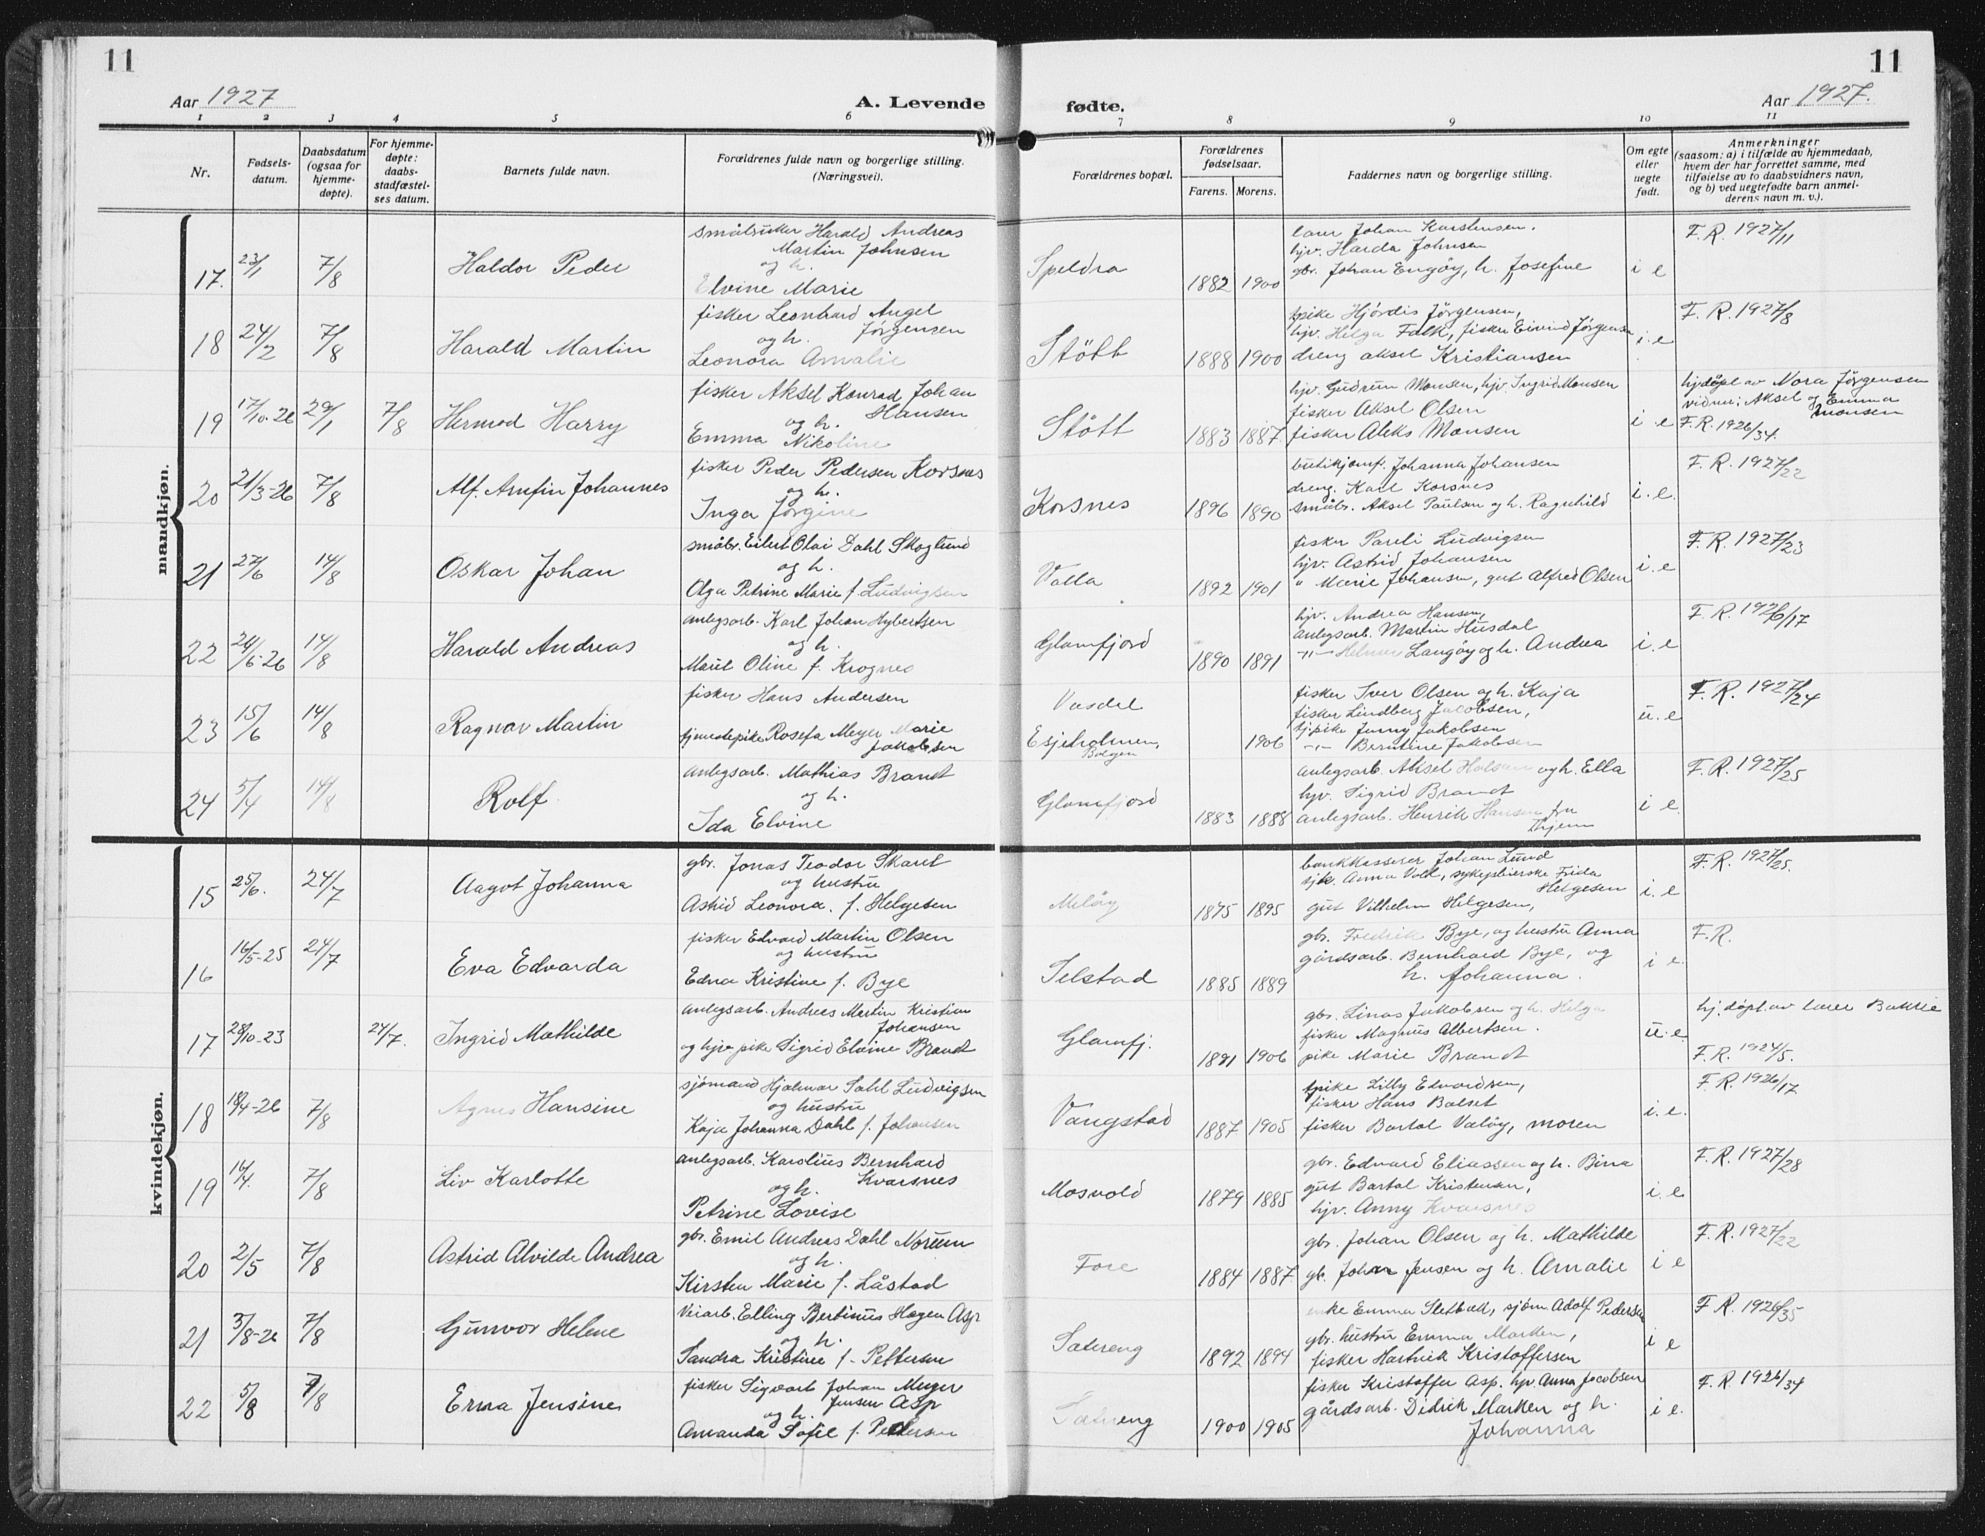 11
11
Aar 1927
A. Levende
fødte.
Aar 1927.
1 2 3 4 5 6 7 8 9 10 11
Nr.
Fødsels-
datum.
Daabsdatum
(ogsaa for
hjemme-
døpte).
For hjemme-
døpte:
daabs-
stadfæstel-
ses datum.
Barnets fulde navn.
Forældrenes fulde navn og borgerlige stilling.
(Næringsvei).
Forældrenes bopæl.
Forældrenes
fødselsaar.
Farens. Morens.
Faddernes navn og borgerlige stilling.
Om egte
eller
uegte
født.
Anmerkninger
(saasom: a) i tilfælde av hjemmedaab,
hvem der har forrettet samme, med
tilføielse av to daabsvidners navn,
og b) ved uegtefødte barn anmel-
derens navn m. v.).
mandkjøn.
17. 23/1 7/8 Haldor Peder
småbruker Harald Andreas
Martin Johnsen
og h.
Elvine Marie
Speldra 1882 1900
lærer Johan Karstensen.
hjv. Harda Johnsen
gbr. Johan Engøy, h. Josefine
i e F.R. 1927/11
18 24/2 7/8 Harald Martin
fisker Leonhard Angel
Jørgensen
og h.
Leonora Amalie
Støtt 1888 1900
pike Hjørdis Jørgensen,
hjv. Helga Falk, fisker Eivind Jørgensen
dreng Aksel Kristiansen
i. e F.R. 1927/8
19 17/10-26 29/1 7/8 Hermod Harry
fisker Aksel Konrad Johan
Hansen
og h.
Emma Nikoline
Støtt 1883 1887
hjv. Gudrun Monsen, hjv. Ingrid Monsen
fisker Aksel Olsen
fisker Aleks Monsen
i e
hjdøpt av Nora Jørgensen
vidner: Aksel og Emma
Monsen
F.R. 1926/34.
20 21/3-26 7/8 Alf. Arnfin Johannes
fisker Peder Pedersen Korsnes
og h.
Inga Jørgine
Korsnes 1896 1890
butikjomf. Johanna Johansen
dreng. Karl Korsnes
småbr. Aksel Paulsen og h. Ragnhild
i. e. F.R. 1927/22
21 27/6 14/8 Oskar Johan
småbr. Eilert Olai Dahl Skoglund
og h.
Olga Petrine Marie f. Ludvigsen
Valla 1892 1901
fisker Pareli Ludvigsen
hjv. Astrid Johansen
" Marie Johansen, gut Alfred Olsen
i. e F.R. 1927/23
22 24/6-26 14/8 Harald Andreas
anlegsarb. Karl Johan Nybertsen
og h.
Marit Oline f. Krognes
Glomfjord 1890 1891
hjv. Andrea Hansen,
anlegsarb. Martin Husdal
-"- Helmer Langøy og h. Andrea
i. e F.R. 1926/17
23 15/6 14/8 Ragnar Martin
fisker Hans Andersen
tjenestepike Rosefa Meyer Marie
Jakobsen
Vasdal
Esjeholmen,
Bolgen
1906
fisker Iver Olsen og h. Kaja
fisker Lindberg Jacobsen,
tj.pike Jenny Jakobsen
-"- Berntine Jakobsen
u. e F.R. 1927/24
24 5/4 14/8 Rolf
anlegsarb. Mathias Brandt
og h.
Ida Elvine
Glomfjord 1883 1888
anlegsarb. Aksel og h. Ella
hjv. Sigrid Brandt
anlegsarb. Henrik Hansen fru
i e. F.R. 1927/25
kvindekjøn.
15 25/6. 24/7 Aagot Johanna
gbr. Jonas Teodor Skaret
og hustru
Astrid Leonora. f. Helgesen
Meløy 1895 1895
bankkasserer Johan Lund
Anna Vold, sykepleierske Frida
Helgesen
gut Vilhelm Helgesen,
i. e F.R. 1927/25.
16 16/5-25 24/7 Eva Edvarda
fisker Edvard Martin Olsen
og hustru
Edna Kristine f. Bye
Selstad 1885 1889
gbr. Fredrik Bye, og hustru Anna
gårdsarb. Bernhard Bye, og
h. Johanna.
i e. F.R.
17 28/10-23 24/7. Ingrid Mathilde
anlegsarb. Andreas Martin Kristian
Johansen
og hjv pike Sigrid Elvine Brandt
Glomfj. 1891 1906
gbr. Linas Jakobsen og h. Helga
fisker Magnus Albertsen.
pike Marie Brandt
u. e.
hj. døpt av lærer Bakkie
F.R. 1924/5.
18 18/4-26 7/8 Agnes Hansine
sjømand Hjalmar Dahl Ludvigsen
og hustru
Kaja Johanna Dahl f. Johansen
Vangstad 1887 1905
pike Lilly Edvardsen,
fisker Hans Bolset
fisker Bartol Valøy, moren
i. e. F.R. 1926/17
19 14/4. 7/8 Liv Karlotte
anlegsarb. Karolius Bernhard
Kvarsnes
og h.
Petrine Lovise
Mosvold 1879 1885
gbr. Edvard Eliassen og h. Bina
gut Bartol Kristensen,
hjv. Anny Kvarsnes
i. e F.R. 1927/28
20 2/5 7/8 Astrid Alvilde Andrea
gbr. Emil Andreas Dahl Noreen
og h.
Kirsten Marie f. Låstad
Fore 1884 1887
gbr. Johan Olsen og h. Mathilde
gb. Johan Jensen og h. Amalie
i e F.R. 1927/22
21 3/8-26 7/8 Gunvor Helene
Veiarb. Elling Bertinus Hagen Asp
og h.
Sandra Kristine f. Pettersen
Sætereng 1892 1894
enke Emma Sletbæd, sjøm Adolf Pedersen
gbr. hustru Emma Marken,
fisker Hartvik Kristoffersen
i e F.R. 1926/35
22 5/8 7/8 Erna Jensine
fisker Sigvart Johan Meyer
Jensen Asp
og h.
Amanda Sofie f. Pedersen
Sætereng 1900 1905
fisker Kristoffer Asp. hjv. Anna Jacobsen
gårdsarb. Didrik Marken og h.
Johanna
i. e. F.R. 1926/34